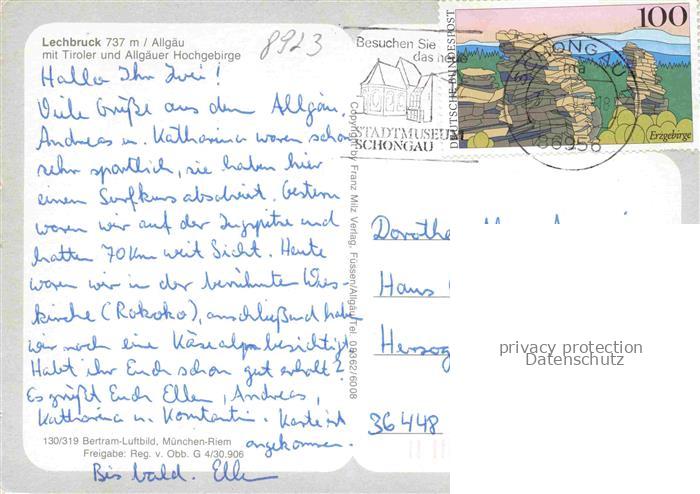 Lechbruck 737 m / Allgäu
mit Tiroler und Allgäuer Hochgebirge
8923
Hallo Ihr Zwei!
Viele Grüße aus dem Allgäu.
Andreas u. Katharina waren schon
sehr sportlich, sie haben hier
einen Surfkurs absolviert. Gestern
waren wir auf der Zugspitze und
hatten 70 Km weit Sicht. Heute
waren wir in der berühmten Wies-
kirche (Rokoko), anschließend haben
wir noch eine Käsealpe besichtigt.
Habt ihr Euch schon gut erholt?
Es grüßt Euch Ellen, Andreas,
Katharina u. Konstantin. Karte ist
angekommen.
130/319 Bertram-Luftbild, München-Riem
Freigabe: Reg. v. Obb. G 4/30.906
Bis bald. Ellen
Copyright by Franz Milz Verlag, Füssen/Allgäu Tel. 08362/6008
Besuchen Sie
das neue
STADTMUSEUM
SCHONGAU
DEUTSCHE BUNDESPOST
100
Erzgebirge
SCHONGAU
86956
Dorothe
Haus
Herzog
36448
privacy protection
Datenschutz